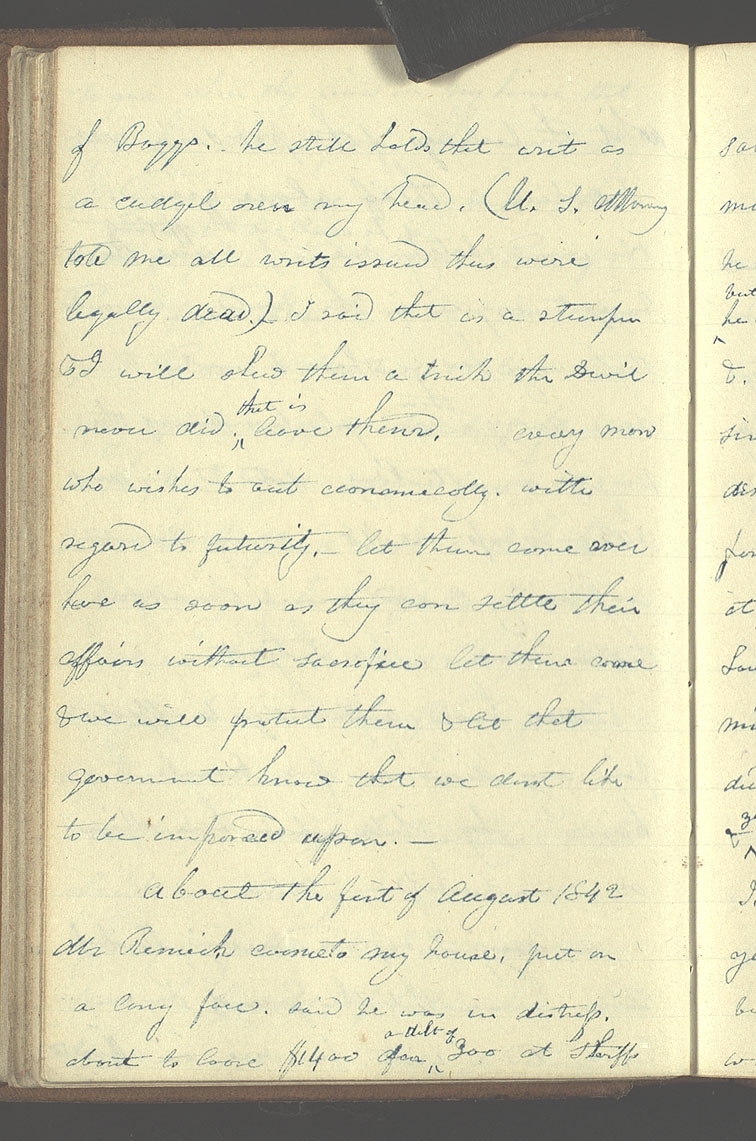 of Boggs. he still holds that writ as
a cudgel over my head. (U. S. Attorney
told me all writs issued thus were
legally dead.) I said that is a stumper
& I will shew them a trick the Devil
that is
never did, leave them. every man
who wishes to act economically. with
regard to futurity.— let them come over
here as soon as they can settle their
affairs without sacrifice let them come
& we will protect them & let that
government know that we dont like
to be imposed upon.—
about the first of August 1842
Mr Remick came to my house, put on
a long face. said he was in distress.
a debt of
about to loose $1400 for 300 at Sheriffs
sa
m
he
but
he
&.
sin
des
for
at
mi